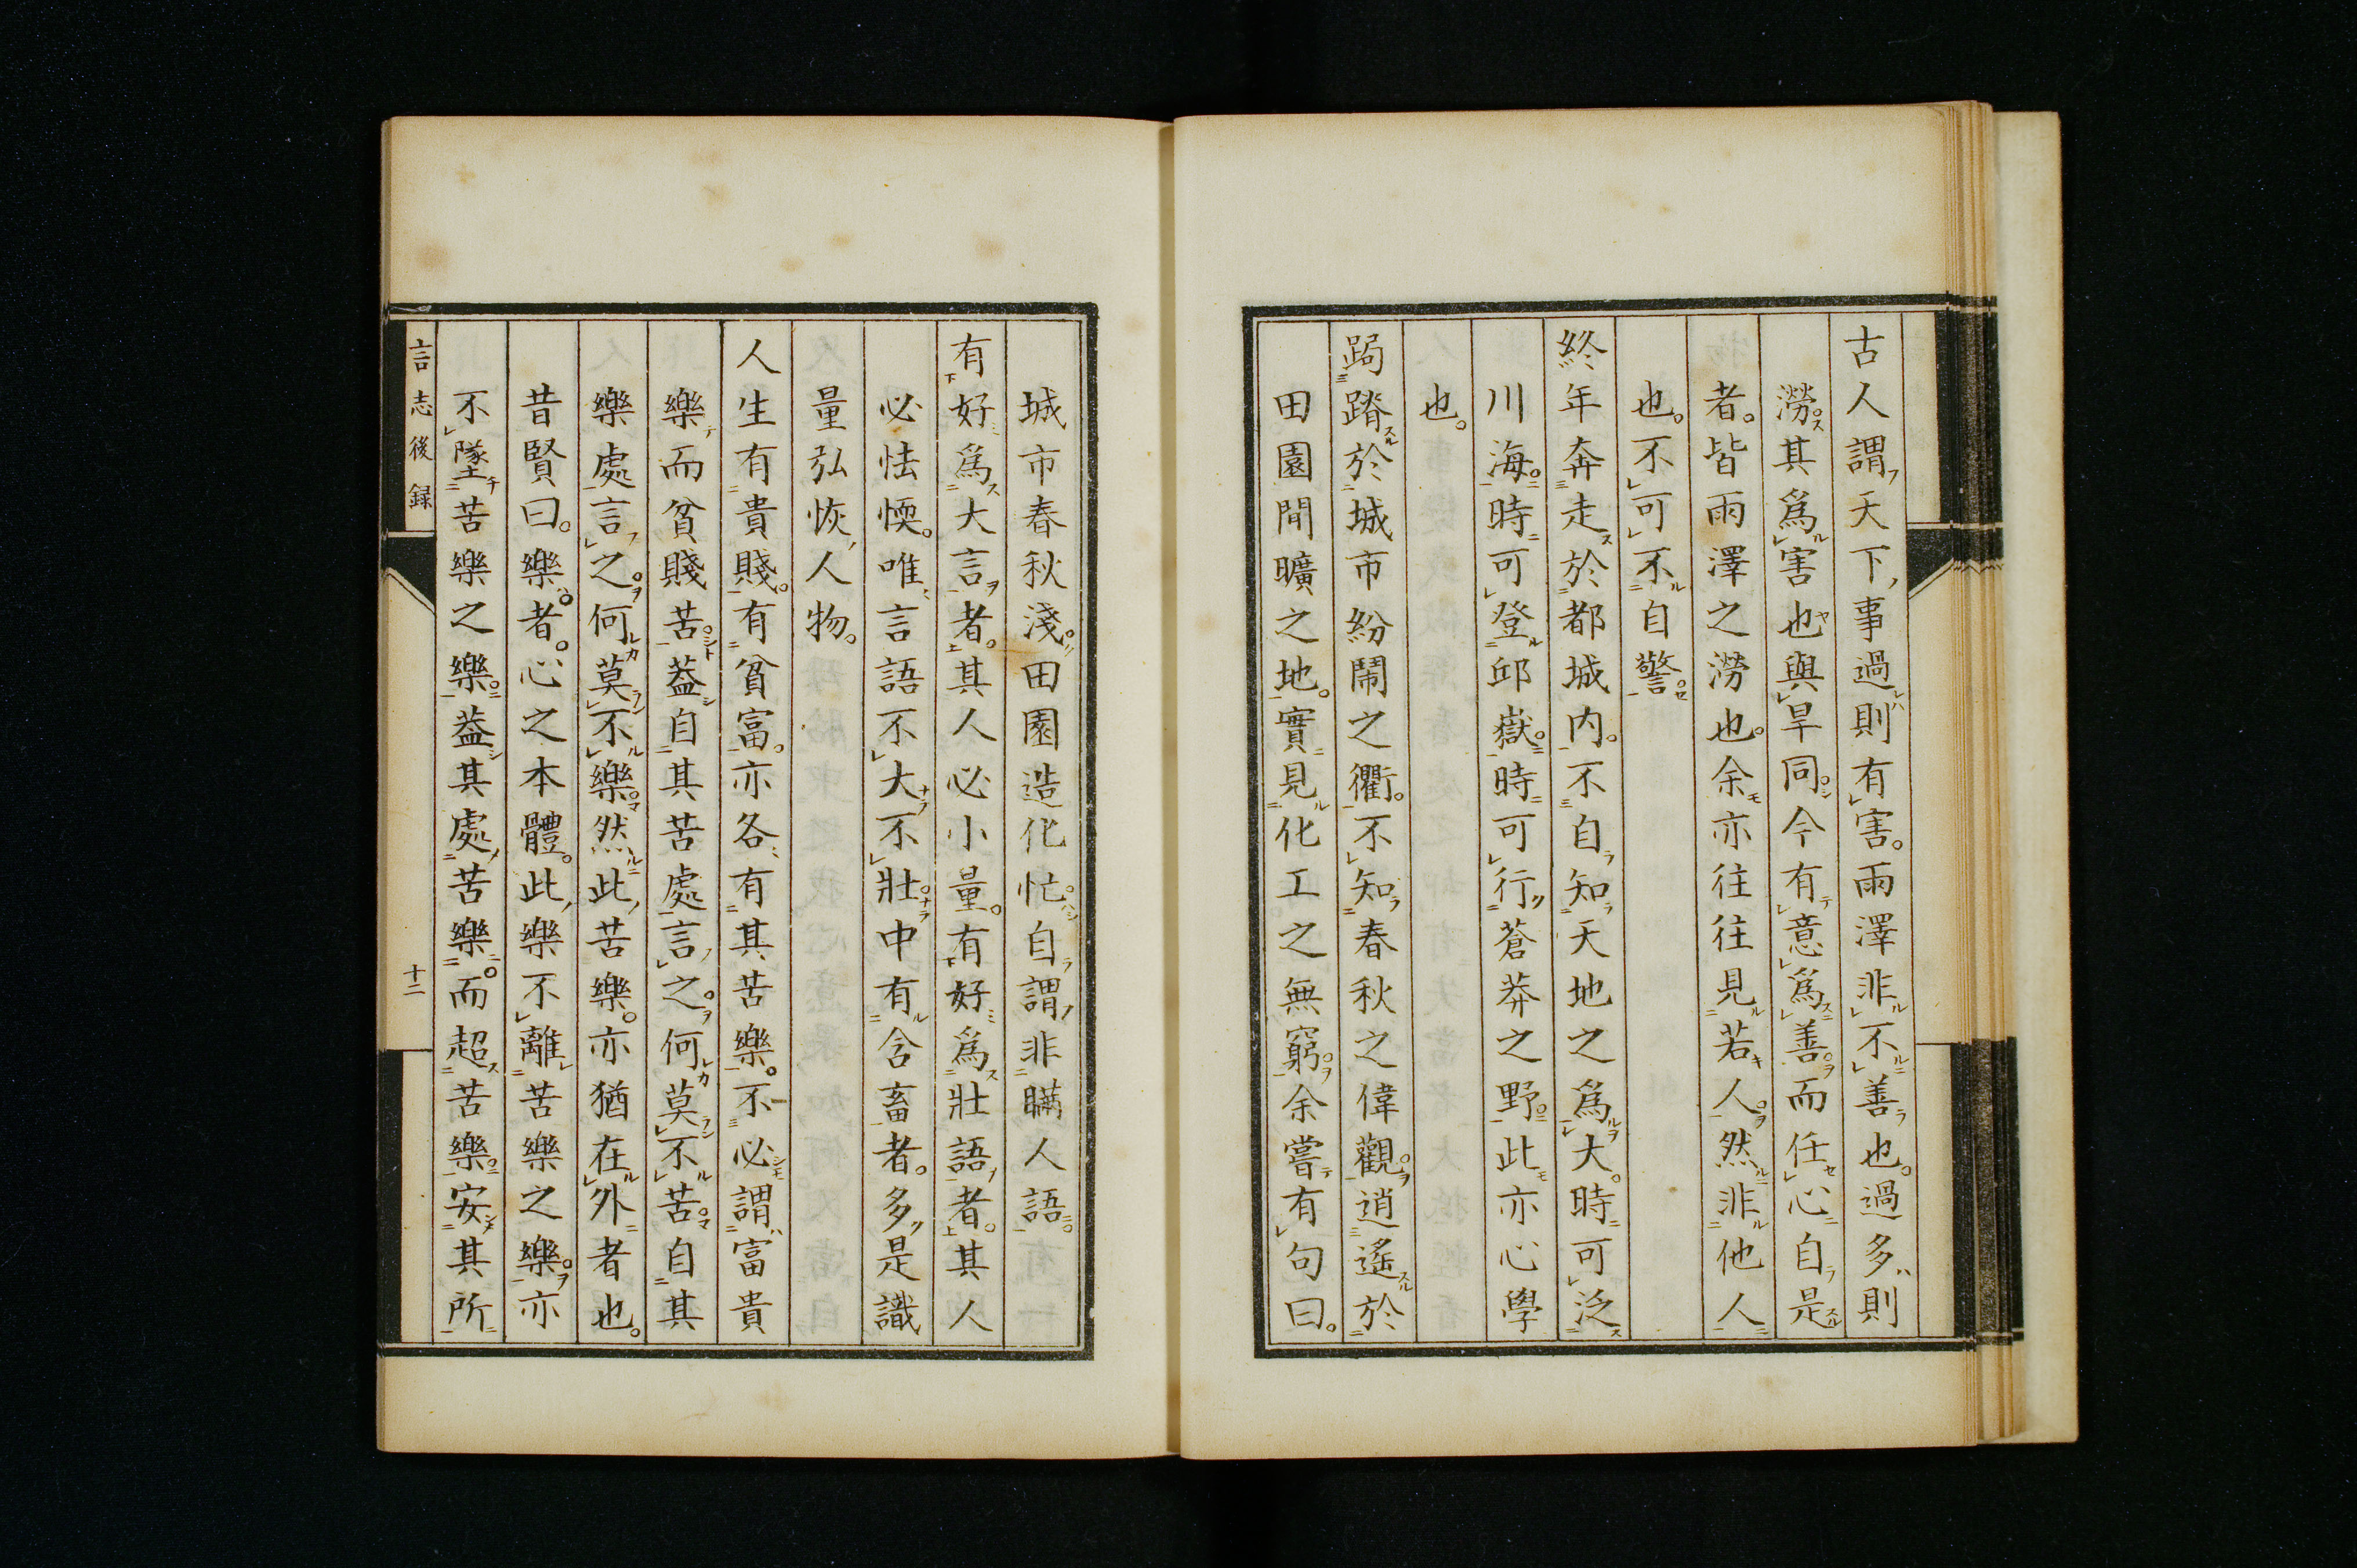 古人謂天下事過則有害。雨澤非不善也。過多則
澇。其爲害也與旱同。今有意爲善。而任心自是
者。皆雨澤之澇也。余亦往往見若人。然非他人
也。不可不自警。
終年奔走於都城内。不自知天地之爲大。時可泛
川海。時可登邱嶽。時可行蒼莽之野。此亦心學
也。
跼蹐於城市紛鬧之衢。不知春秋之偉觀。逍遙於
田園閒曠之地。實見化工之無窮。余嘗有句曰。
城市春秋淺。田園造化忙。自謂非瞞人語。
有好爲大言者。其人必小量。有好爲壯語者。其人
必怯愞。唯言語不大不壯。中有含畜者。多是識
量弘恢人物。
人生有貴賤。有貧富。亦各有其苦樂。不必謂富貴
樂而貧賤苦。蓋自其苦處言之。何莫不苦。自其
樂處言之。何莫不樂。然此苦樂。亦猶在外者也。
昔賢曰。樂者。心之本體。此樂不離苦樂之樂。亦
不墜苦樂之樂。蓋其處苦樂。而超苦樂。安其所
言志後録
十二